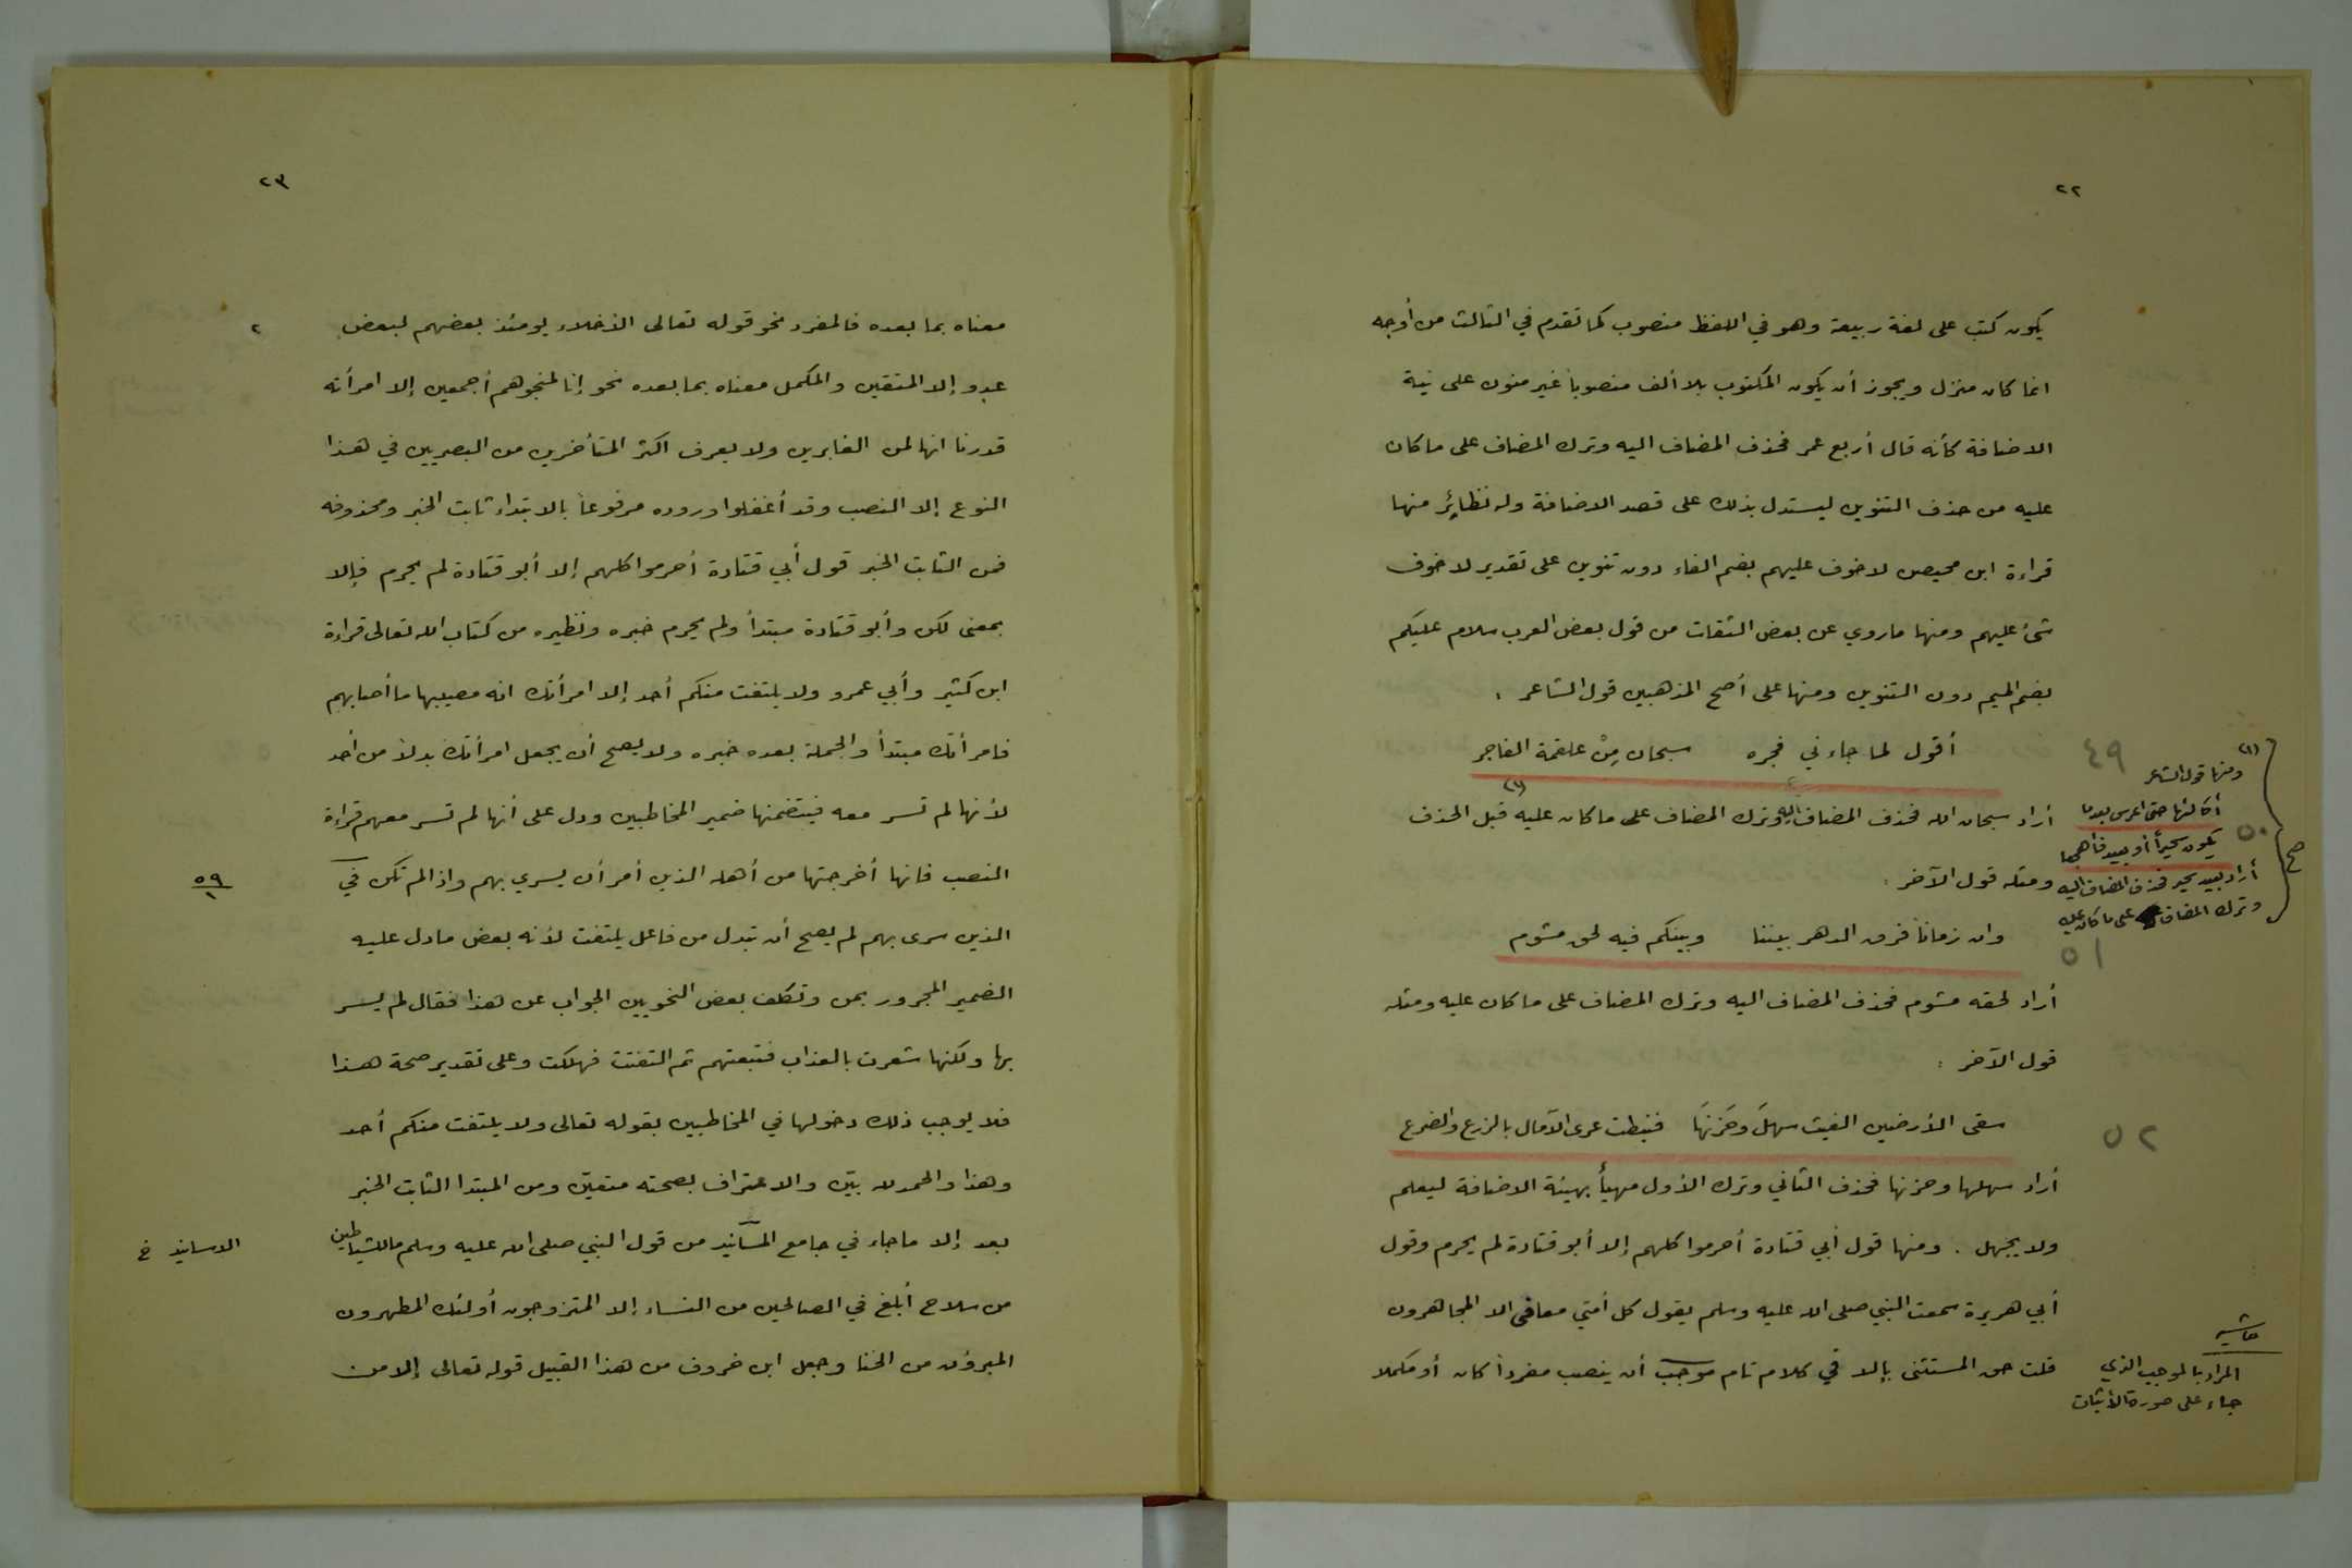 ٢٢
يكون كتب على لغة ربيعة وهو في اللفظ منصوب كما تقدم في الثالث من أوجه
انما كان منزل ويجوز أن يكون المكتوب بلا ألف منصوبا غير منون على نية
الاضافة كأنه قال أربع عمر فحذف المضاف اليه وترك المضاف على ما كان
عليه من حذف التنوين ليستدل بذلك على قصد الاضافة وله نظائر منها
قراءة ابن محيصن لا خوف عليهم بضم الفاء دون تنوين على تقدير لا خوف
شئ عليهم ومنها ما روي عن بعض الثقات من قول بعض العرب سلام عليكم
بضم الميم دون التنوين ومنها على أصح المذهبين قول الشاعر .
أقول لما جاءني فجره سبحان مِنْ علقمة الفاجر
٤٩
أراد سبحان الله فحذف المضاف اليه وترك المضاف على ما كان عليه (١) قبل الحذف
ومثله قول الآخر :
وان زمانا فرق الدهر بيننا وبينكم فيه لحق مشوم
٥١
أراد لحقه مشوم فحذف المضاف اليه وترك المضاف على ما كان عليه ومثله
قول الآخر :
سقى الأرضين الغيث سهلَ وحَزنَها فنيطت عرى الآمال بالزرع والضرع
٥٢
أراد سهلها وحزنها فحذف الثاني وترك الأول مهيأ بهيئة الاضافة ليعلم
ولا يجهل . ومنها قول أبي قتادة أحرموا كلهم إلا أبو قتادة لم يحرم وقول
أبي هريرة سمعت النبي صلى الله عليه وسلم يقول كل أمتي معافى الا المجاهرون
قلت حق المستثنى بإلا في كلام تام موجب أن ينصب مفردا كان أو مكملا
(١)
ومنها قول الشاعر
أكالئها حتى اعرس بعدما
٥٠
يكون سحيرا أو بعيد فأهجعا
أراد بعيد سحير فحذف المضاف اليه
وترك المضاف على ما كان عليه
صح
حاشيه
المراد بالموجب الذي
جاء على صورة الأثبات
٢٣
معناه بما بعده فالمفرد نحو قوله تعالى الأخلاء يومئذ بعضهم لبعض
٢
عدو إلا المتقين والمكمل معناه بما بعده نحو إنا لمنجوهم أجمعين إلا امرأته
قدرنا انها لمن الغابرين ولا يعرف اكثر المتأخرين من البصريين في هذا
النوع إلا النصب وقد أغفلوا وروده مرفوعا بالابتداء ثابت الخبر ومحذوفه
فمن الثابت الخبر قول أبي قتادة أحرموا كلهم إلا أبو قتادة لم يحرم فإلا
بمعنى لكن وأبو قتادة مبتدأ ولم يحرم خبره ونظيره من كتاب الله تعالى قراءة
ابن كثير وأبي عمرو ولا يلتفت منكم أحد إلا امرأتك انه مصيبها ما أصابهم
فامرأتك مبتدأ والجملة بعده خبره ولا يصح أن يجعل امرأتك بدلا من أحد
لأنها لم تسر معه فيتضمنها ضمير المخاطبين ودل على أنها لم تسر معهم قراءة
النصب فانها أخرجتها من أهله الذين أمر أن يسري بهم واذا لم تكن في
٥٩
١
الذين سرى بهم لم يصح أن تبدل من فاعل يلتفت لأنه بعض ما دل عليه
الضمير المجرور بمن وتكلف بعض النحويين الجواب عن هذا فقال لم يسر
بها ولكنها شعرت بالعذاب فتبعتهم ثم التفتت فهلكت وعلى تقدير صحة هذا
فلا يوجب ذلك دخولها في المخاطبين بقوله تعالى ولا يلتفت منكم أحد
وهذا والحمد لله بيّن والاعتراف بصحته متعيّن ومن المبتدا الثابت الخبر
بعد إلا ما جاء في جامع المسانيد من قول النبي صلى الله عليه وسلم ما للشياطين
الاسانيد خ
من سلاح أبلغ في الصالحين من النساء إلا المتزوجون أولئك المطهرون
المبرؤن من الخنا وجعل ابن خروف من هذا القبيل قوله تعالى إلا من